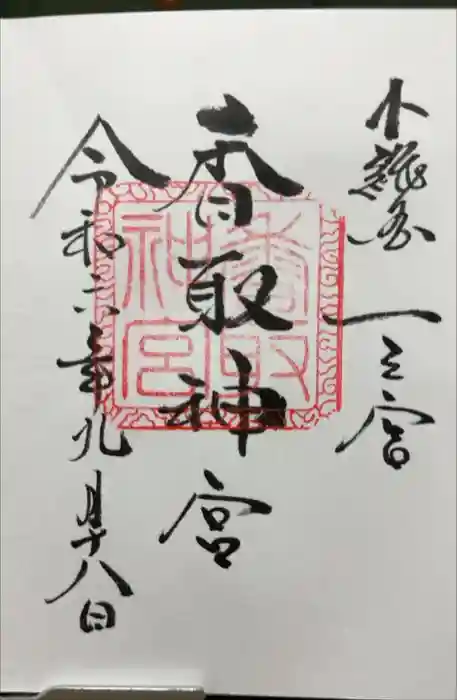 下総国 一之宮
香取神宮
令和六年九月十八日
香取
神宮